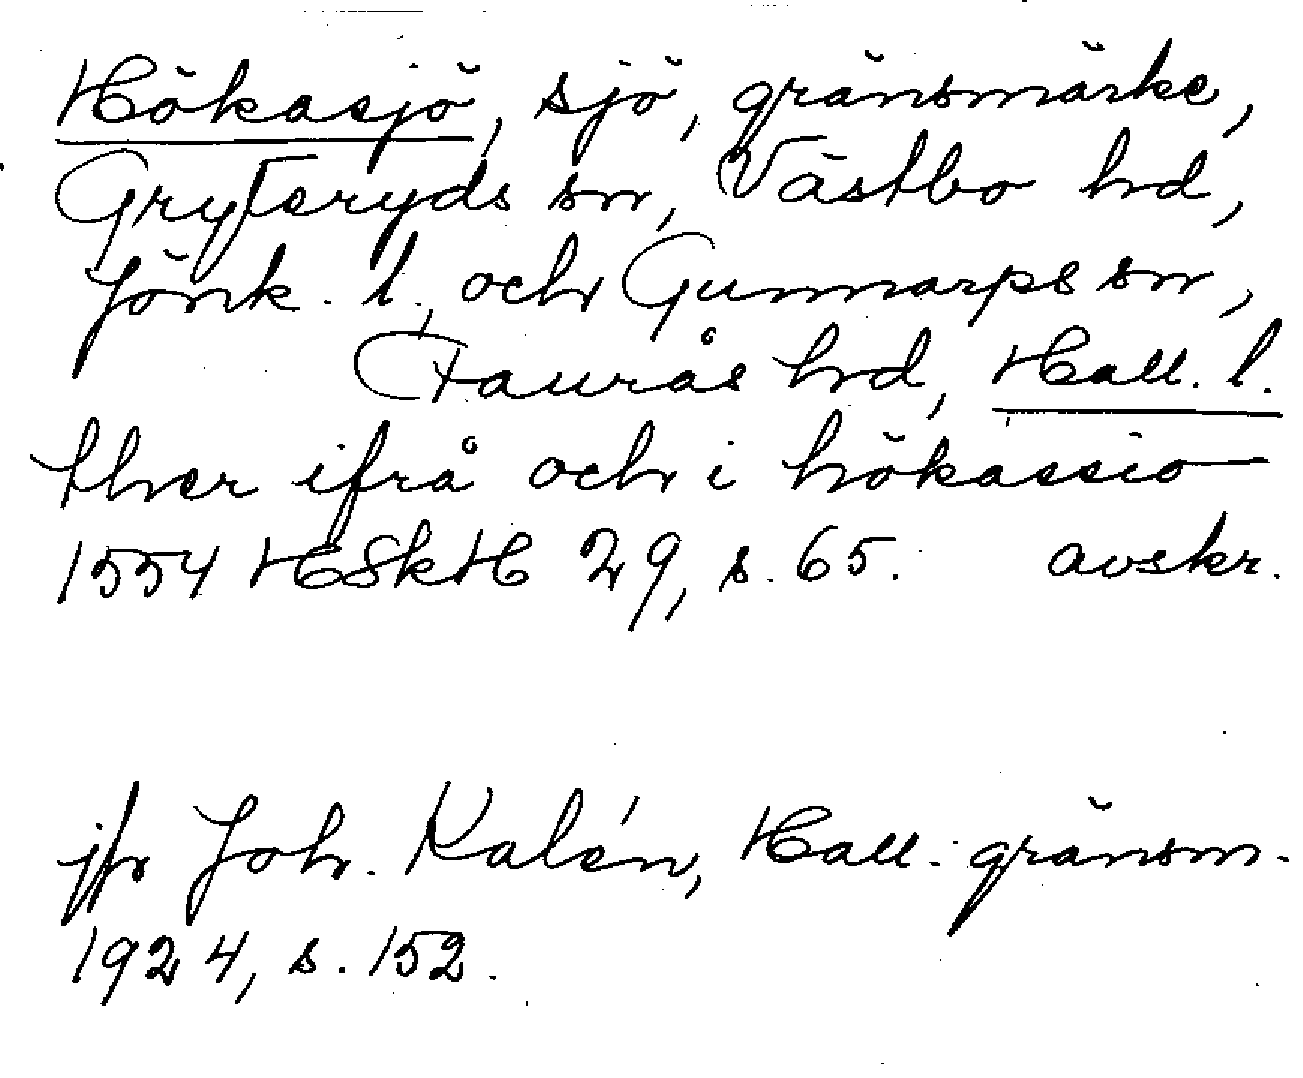 Hökasjö, sjö, gränsmärke,
Gryteryds sn, Västbo hd,
Jönk. l. och Gunnarps sn,
Faurås hd, Hall. l.
ther ifrå och i hökassio
1554 HSkH 29, s. 65. avskr.
jfr Joh. Kalén, Hall. gränsm.
1924, s. 152.